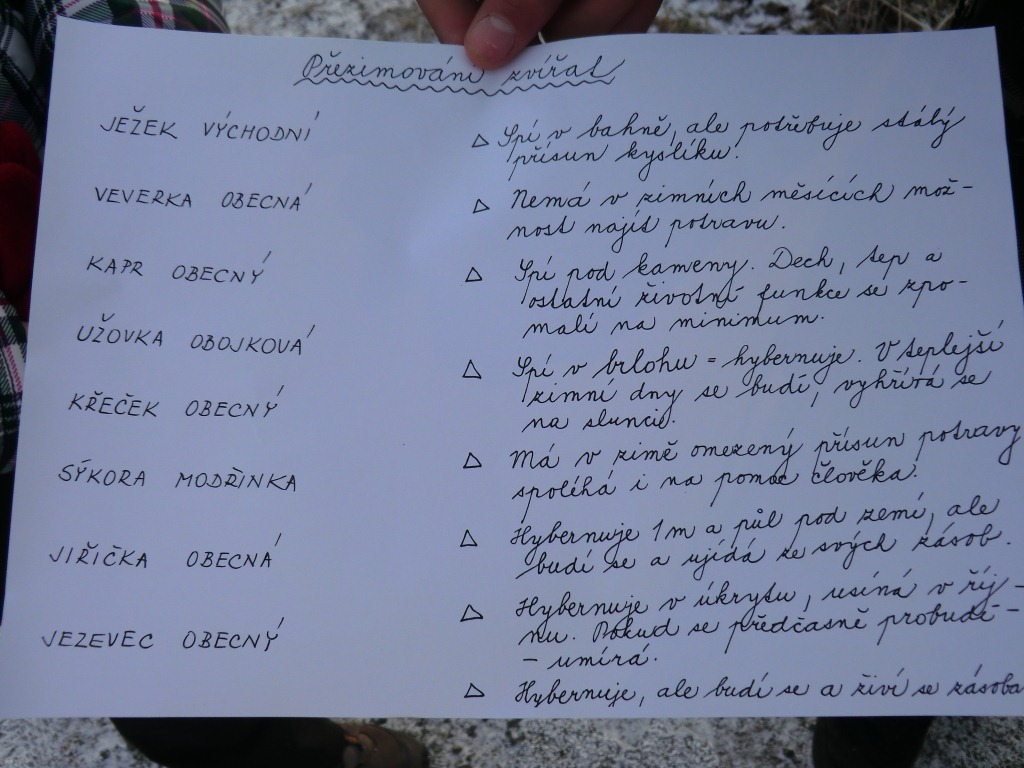 Přezimování zvířat
JEŽEK VÝCHODNÍ
VEVERKA OBECNÁ
KAPR OBECNÝ
UŽOVKA OBOJKOVÁ
KŘEČEK OBECNÝ
SÝKORA MODŘINKA
JIŘIČKA OBECNÁ
JEZEVEC OBECNÝ
△ Spí v bahně, ale potřebuje stálý
přísun kyslíku.
△ Nemá v zimních měsících mož-
nost najít potravu.
△ Spí pod kameny. Dech, tep a
ostatní životní funkce se zpo-
malí na minimum.
△ Spí v brlohu = hybernuje. V teplejší
zimní dny se budí, vyhřívá se
na slunci.
△ Má v zimě omezený přísun potravy
spoléhá i na pomoc člověka.
△ Hybernuje 1m a půl pod zemí, ale
budí se a ujídá ze svých zásob.
△ Hybernuje v úkrytu, usíná v říj-
nu. Pokud se předčasně probudí -
- umírá.
△ Hybernuje, ale budí se a živí se zásoba